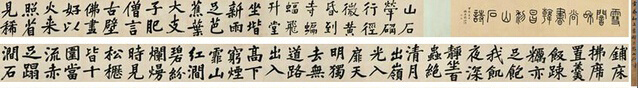 山石
犖确
行徑
微黃
昏到
寺蝙
蝠飛
升堂
坐階
新雨
足芭
蕉葉
大支
子肥
僧言
古壁
佛畫
好以
火來
照所
見稀
鋪床
拂席
置羹
飯疏
糲亦
足飽
我飢
夜深
靜臥
百蟲
絕清
月出
嶺光
入扉
天明
獨去
無道
路出
入高
下窮
煙霏
山紅
澗碧
紛爛
熳時
見松
櫪皆
十圍
當流
赤足
蹋澗
石